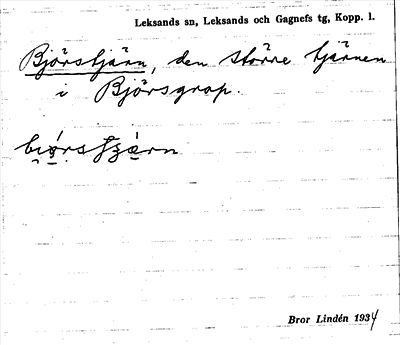 Leksands sn, Leksands och Gagnefs tg, Kopp. l.
Björstjärn, den större tjärnen
i Björsgrap.
Bror Lindén 1934